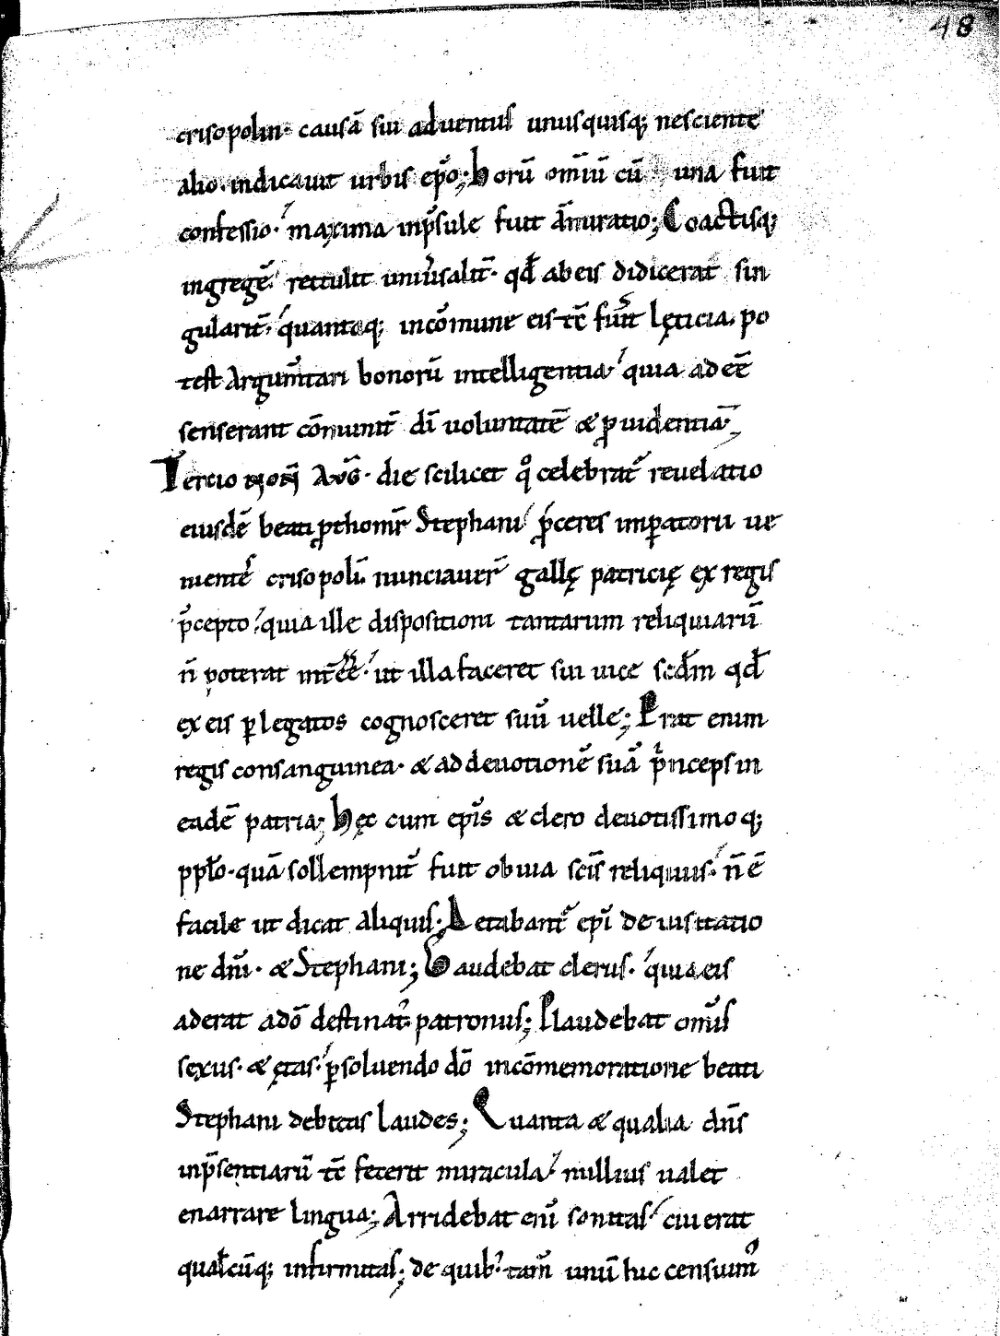 48
crisopolin· causā sui aduentus unusquisq; nesciente
alio· indicauit urbis ep̄o; Horū om̄iū cū una fuit
confessio· maxima inp̄sule fuit am̄iratio; Coactisq;
ingregē rettulit uniūsalit̄· qđ abeis didicerat sin
gularit̄· quantaq; incōmune eis tc̄ fuīt lęticia· po
test argum̄tari bonorū intelligentia· quia ad eē
senserant cōmunit̄ dī uoluntatē & ꝓuidentiā;
Tercio noꝶ Auḡ· die scilicet qͦ celebrat᷑ reuelatio
eiusdē beati ꝓthom̄r Stephani ꝓceres imꝑatorii ue
nient̄ crisopolī nunciauer̄ gallę patricię ex regis
p̄cepto· quia ille dispositioni tantarum reliquiarū
n̄ poterat intēe͞e· ut illa faceret sui uice scđm qđ
ex eis ꝑ legatos cognosceret suū uelle; Erat enim
regis consanguinea· & ad deuotionē suā p̄nceps in
eadē patria; Hęc cum ep̄is & clero deuotissimoq;
pplo· quā sollempnit̄ fuit obuia sc̄is reliquiis· n̄ ē
facile ut dicat aliquis; Letabant᷑ ep̄i de uisitatio
ne dn̄i· & Stephani; Gaudebat clerus· quia eis
aderat a dō destinat᷒ patronus; Plaudebat om̄is
sexus· & ętas· ꝑsoluendo dō incōmemoratione beati
Stephani debitas laudes; Quanta & qualia dn̄s
inp̄sentiarū tc̄ fecerit miracula· nullius ualet
enarrare lingua; Arridebat eni̅ sonitas· cui erat
qualicūq; infirmitas; de quib᷒ tam̄ unū huc censuim᷒